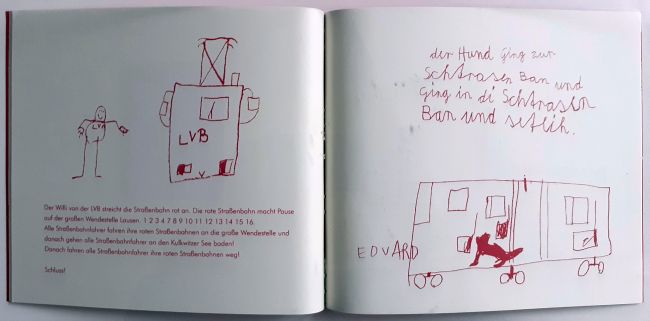 LVA
LVB
Der Willi von der LVB streicht die Straßenbahn rot an. Die rote Straßenbahn macht Pause
auf der großen Wendestelle Lausen. 1 2 3 4 7 8 9 10 11 12 13 14 15 16.
Alle Straßenbahnfahrer fahren ihre roten Straßenbahnen an die große Wendestelle und
danach gehen alle Straßenbahnfahrer an den Kulkwitzer See baden!
Danach fahren alle Straßenbahnfahrer ihre roten Straßenbahnen weg!
Schluss!
der Hund Ging zur
Schtrasen Ban und
Ging in di Schtrasen
Ban und setzih.
EDVARD